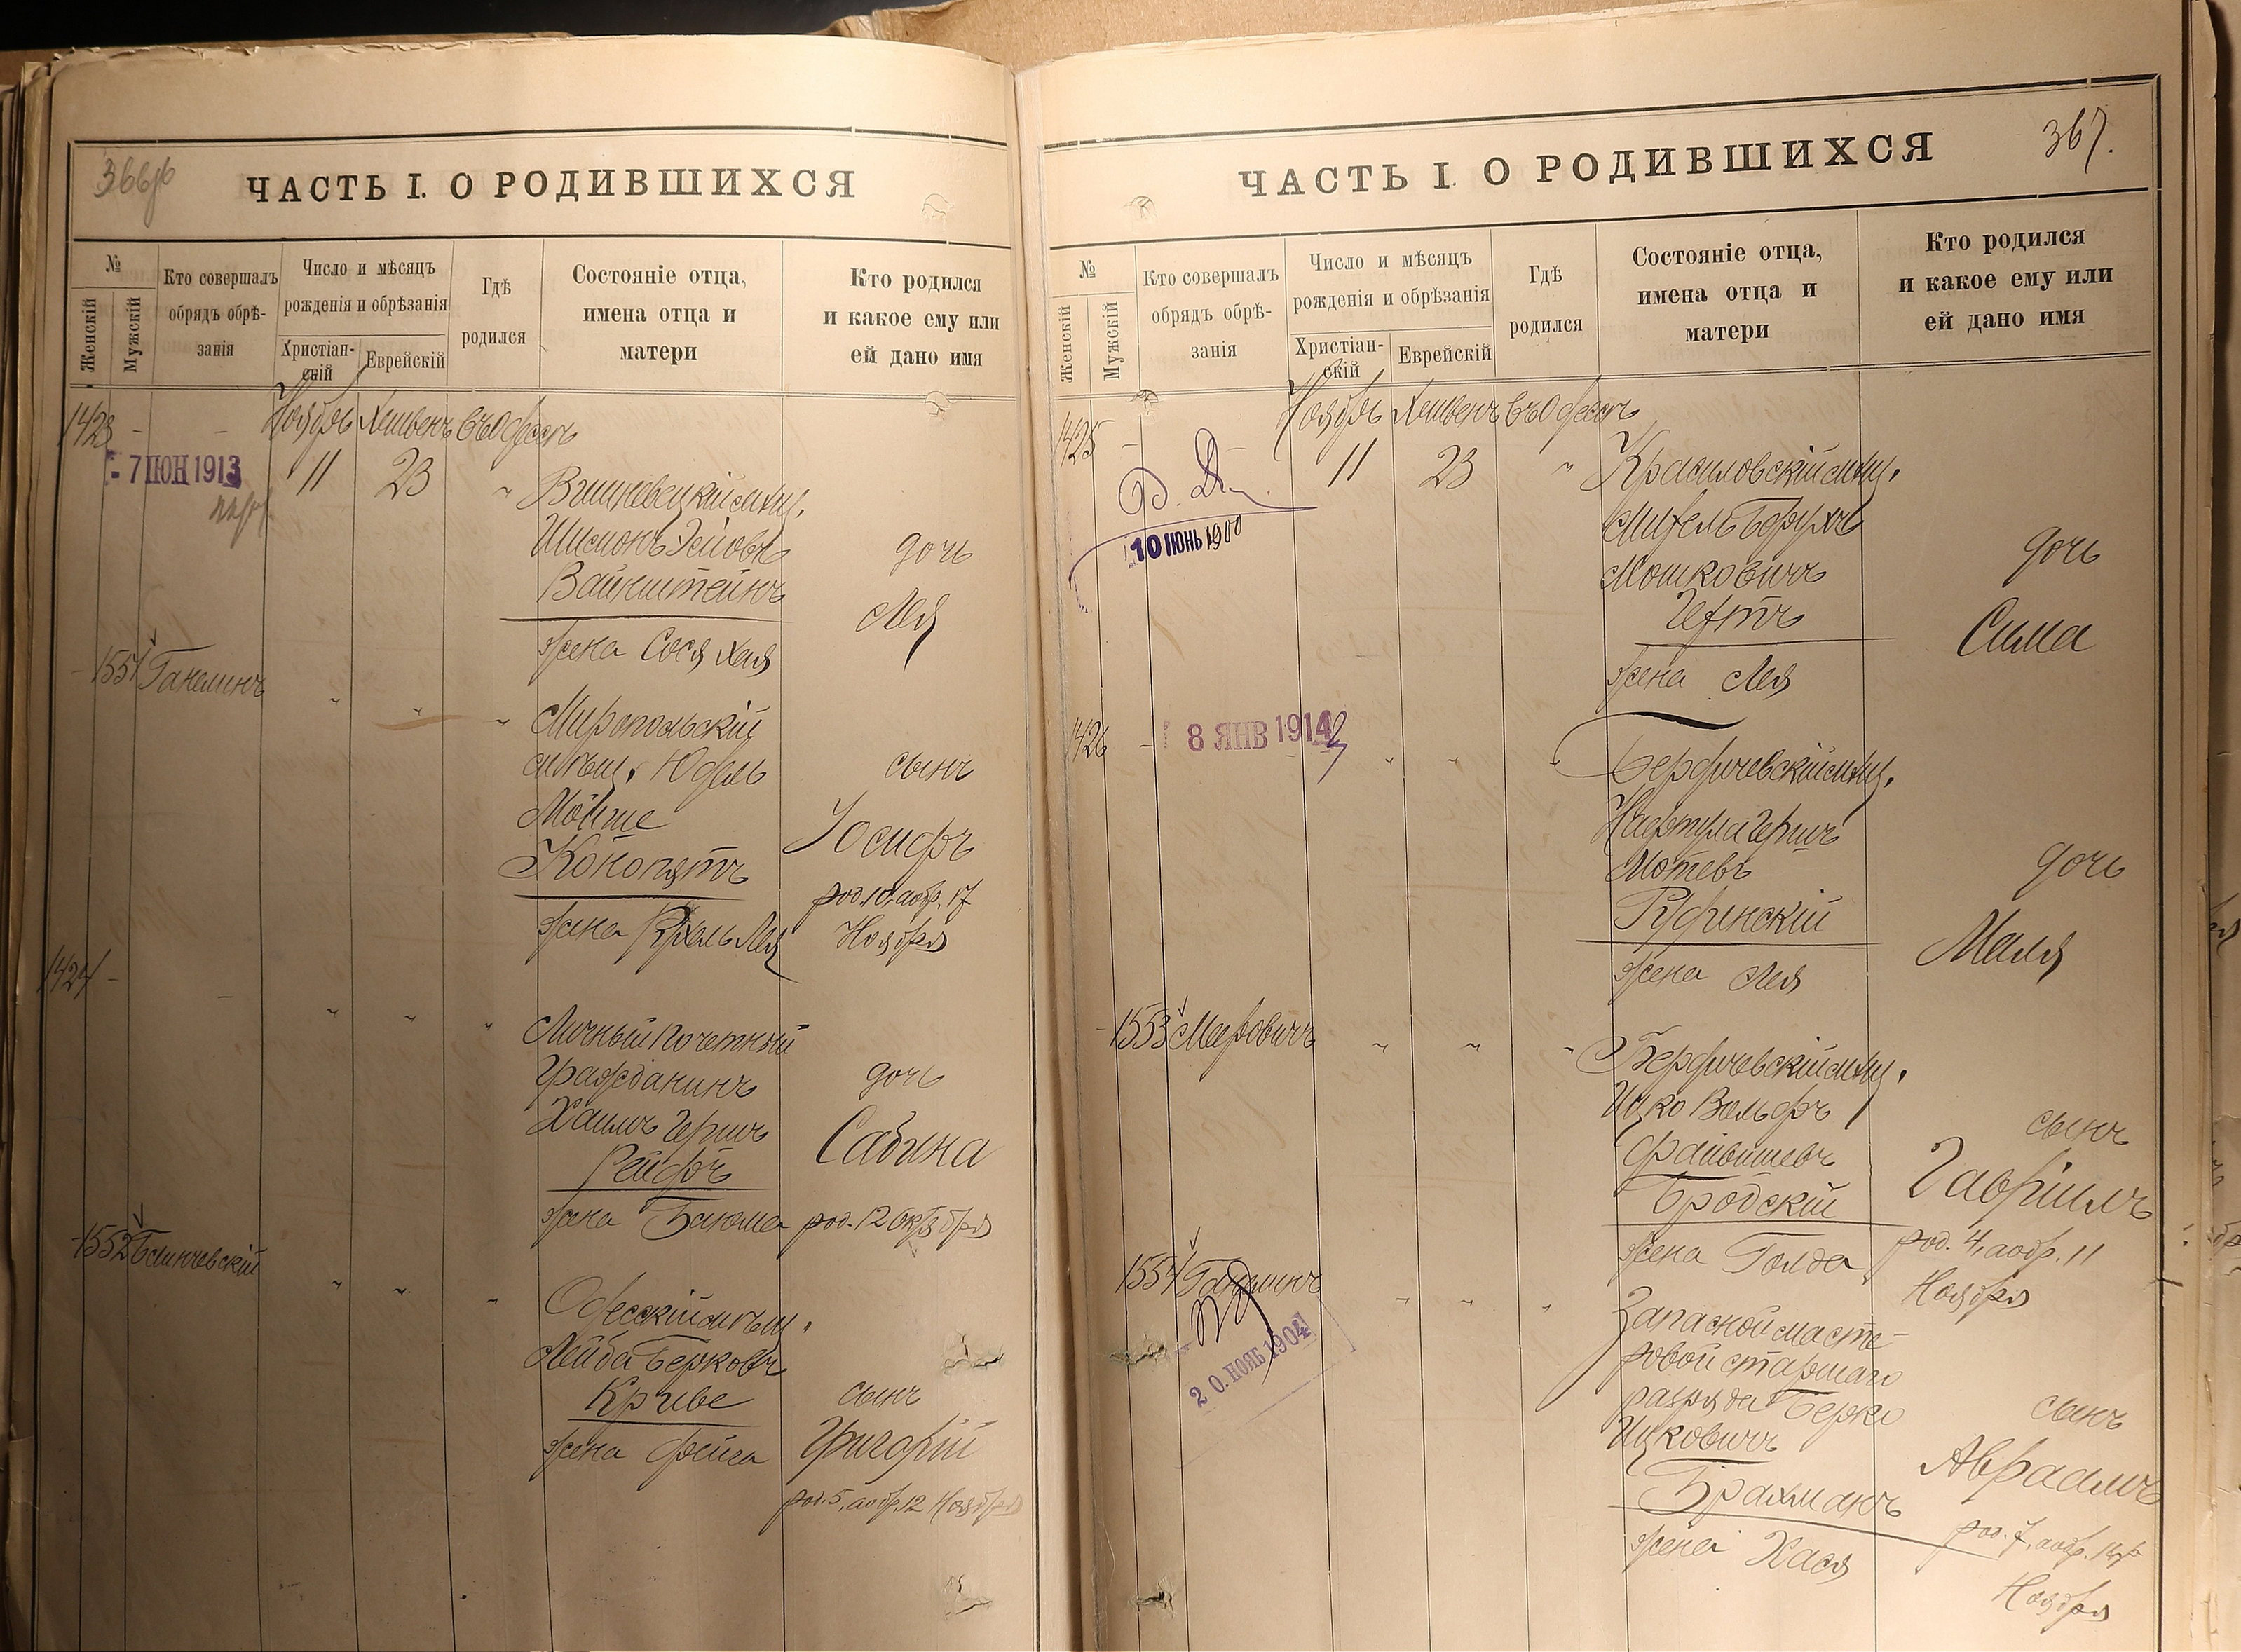 366об
ЧАСТЬ I. О РОДИВШИХСЯ
№
Женскій
Мужскій
Кто совершалъ
обрядъ обрѣ-
занія
Число и мѣсяцъ
рожденія и обрѣзанія
Христіан-
скій
Еврейскій
Гдѣ
родился
Состояніе отца,
имена отца и
матери
Кто родился
и какое ему или
ей дано имя
1423 - - Ноябрь Хешвенъ въ Одессѣ
- 7 ІЮН 1913
11 23 "
Вишневецкій мѣщ.
Шимонъ
Вайнштейнъ
жена Сося Хая
дочь
Лея
- 1551 Ганелинъ " " "
Миропольскій
мѣщ. Юдель
Мойше
Конопятъ
жена Лея
сынъ
Іосифъ
род. 10, а обр. 17
Ноября
1424 - - " " "
Личный Почетный
Гражданинъ
Хаимъ Гершъ
Рейфъ
жена
дочь
Сабина
род. 12 Октября
- 1552 " " "
Одесскій мѣщ.
Лейба Берковъ
Криве
жена Фейга
сынъ
Григорій
род. 5, а обр. 12 Ноября
367.
ЧАСТЬ I. О РОДИВШИХСЯ
№
Женскій
Мужскій
Кто совершалъ
обрядъ обрѣ-
занія
Число и мѣсяцъ
рожденія и обрѣзанія
Христіан-
скій
Еврейскій
Гдѣ
родился
Состояніе отца,
имена отца и
матери
Кто родился
и какое ему или
ей дано имя
1425 - Ноябрь Хешвенъ въ Одессѣ
10 ІЮНЬ 1900
11 23 "
Красиловскій мѣщ.
Борухъ
Мошковичъ
жена Лея
дочь
Сима
1426 -
8 ЯНВ 1914
" " "
Бердичевскій мѣщ.
Нафтула Гершъ
Мотевъ
жена Лея
дочь
Маля
- 1553 Мееровичъ " " "
Бердичевскій мѣщ.
Ицко Вольфъ
Файвишевъ
Бродскій
жена Голда
сынъ
Гавріилъ
род. 4, а обр. 11
Ноября
1554 Ганелинъ " " "
20. НОЯБ 1904
Запасной масте-
ровой старшаго
разряда Берко
Ицковичъ
Брахманъ
жена Хася
сынъ
Авраамъ
род. 7, а обр. 14
Ноября